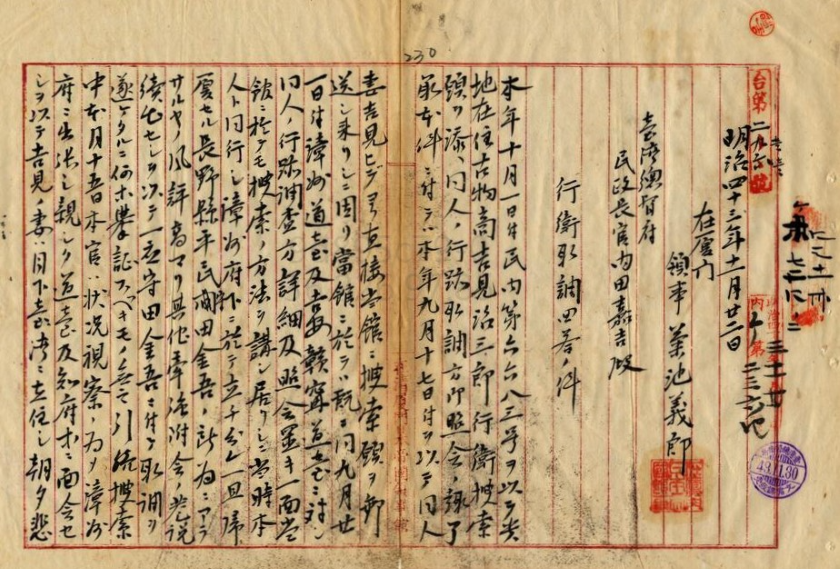 230
台第二九六號
明治四十三年十一月廿二日
在厦門
領事 菊池義郎
臺灣總督府
民政長官內田嘉吉殿
行衛取調回答ノ件
本年十月一日付民内第六六八三号ヲ以テ貴
地在住古物商吉見治三郎行衛搜索
願ヲ添ヘ同人ノ行跡取調方御照会ノ趣了
承本件ニ付テハ本年九月十七日付ヲ以テ同人
妻吉見ヒデヨリ直接当館ニ搜索願ヲ郵
送シ来リシニ因リ當館ニ於テハ既ニ同九月廿
一日付漳州道台及 ニ対シ
同人ノ行跡調査方詳細及照会置キ一面当
館ニ於テモ搜索ノ方法ヲ講シ居リシニ当時本
人ト同行シ漳州府下ニ於テ立チ分レ一旦帰
厦セル長野縣平民 田金吾ノ所為ニアラ
サルヤノ風評高マリ其他牽強附会ノ巷説
続出セシヲ以テ一応守田金吾ニ付キ取調ヲ
遂ケタルニ何ホ 証スベキモノ無ク引続搜索
中本月十五日本官ハ状況視察ノ為メ漳州
府ニ出張シ親シク道台及知府ホニ面会セ
シヲ以テ吉見ノ妻ハ目下臺湾ニ在住シ朝夕悲
43.11.30